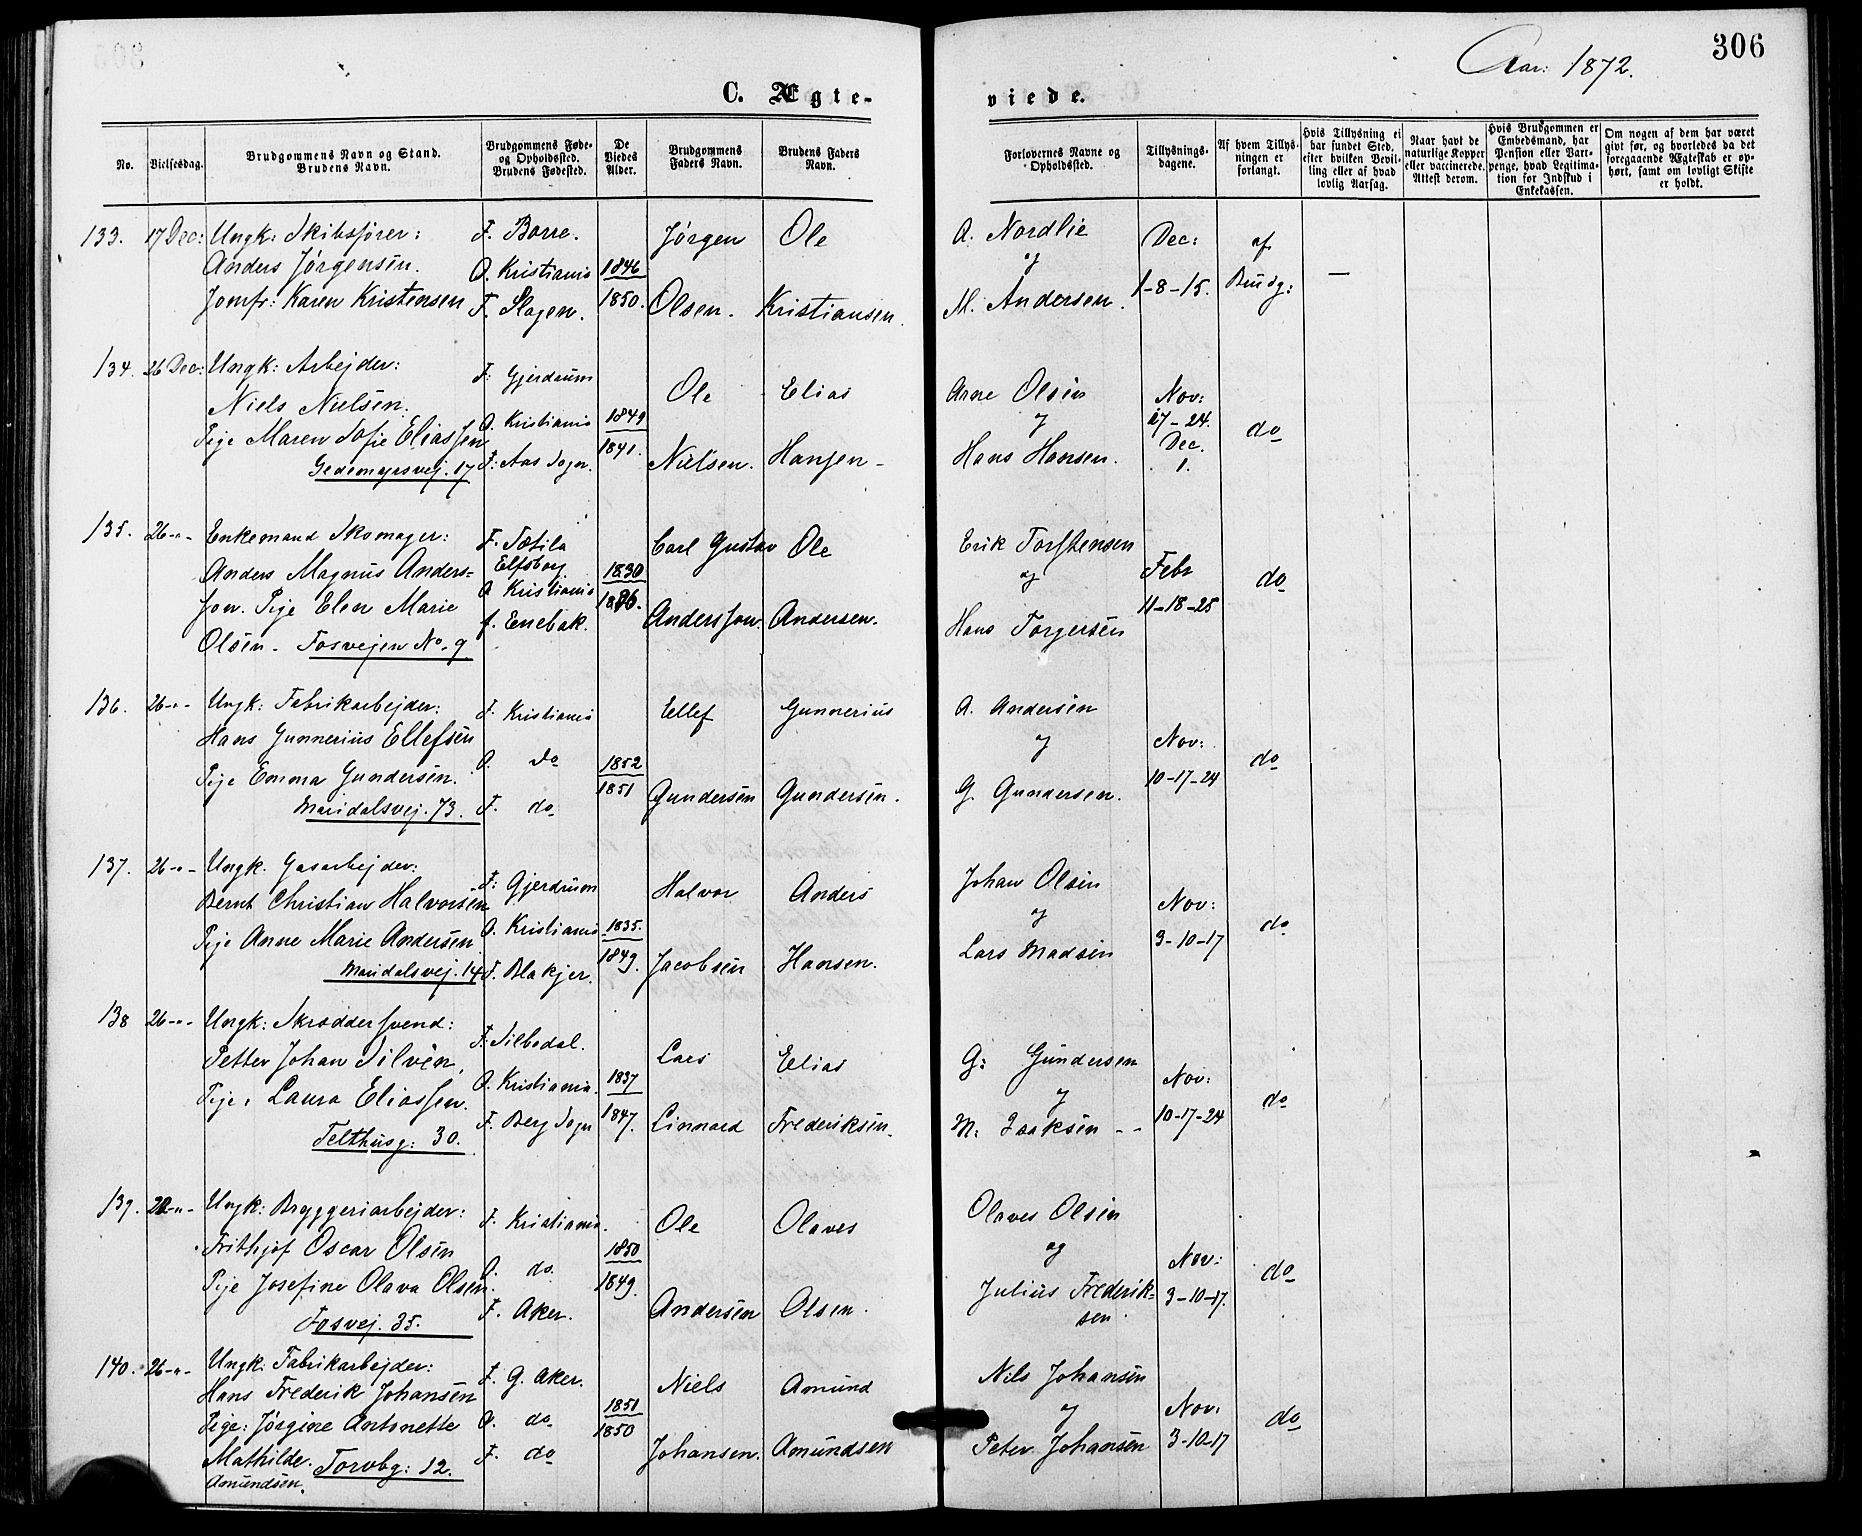 306
Aar: 1872.
C. Ægte-
viede.
No.
Vielsesdag.
Brudgommens Navn og Stand.
Brudens Navn.
Brudgommens Føde-
og Opholdssted.
Brudens Fødested.
De
Viedes
Alder.
Brudgommens
Faders Navn.
Brudens Faders
Navn.
Forlovernes Navne og
Opholdssted.
Tillysnings-
dagene.
Af hvem Tillys-
ningen er
forlangt.
Hvis Tillysning ei
har fundet Sted,
efter hvilken Bevil-
ling eller af hvad
lovlig Aarsag.
Naar havt de
naturlige Kopper
eller vaccinerede.
Attest derom.
Hvis Brudgommen er
Embedsmand, har
Pension eller Vart-
penge, hvad Legitima-
tion for Indskud i
Enkekassen.
Om nogen af dem har været
gift før, og hvorledes da det
foregaaende Ægteskab er op-
hørt, samt om lovligt Skifte
er holdt.
133. 17 Dec: Ungk: Skibsfører:
Anders Jørgensen.
Jomfr: Karen Kristensen
F. Borre.
O. Kristiania
F. Slagen.
1846
1850.
Jørgen
Olsen.
Ole
Kristiansen.
A. Nordlie
og
M. Andersen.
Dec:
1-8-15.
af
Brudg:
—
134. 26 Dec: Ungk: Arbejder:
Niels Nielsen.
Pige Maren Sofie Eliassen
Gedemyrsvej. 17
F. Gjerdrum
O. Kristiania
F. Aas Sogn.
1849
1841.
Ole
Nielsen.
Elias
Hansen -
Arne Olsen
og
Hans Hansen.
Nov:
17-24.
Dec.
1.
do
135. 26-"- Enkemand Skomager:
Anders Magnus Anders-
son. Pige Elen Marie
Olsen. Fosvejen No. 9
F. Sætila
Elfsborg
O Kristiania
f. Enebak.
1830
Carl Gustav
Andersson.
Ole
Andersen.
Erik Torstensen
og
Hans Torgersen
Febr
11-18-25
do
136. 26-"- Ungk: Fabrikarbejder:
Hans Gunnerius Ellefsen
Pige Emma Gundersen.
Maridalsvej. 73.
F. Kristiania
O. do
F. do
1852
1851
Ellef
Gundersen
Gunnerius
Gundersen.
A. Andersen
og
G. Gundersen.
Nov:
10-17-24
do
137. 26-"- Ungk. Gasarbejder:
Bernt Christian Halvorsen
Pige Anne Marie Andersen
Maridalsvej. 14
F. Gjerdrum
O. Kristiania
F. Blakjer.
1835.
1849.
Halvor
Jacobsen
Anders
Hansen.
Johan Olsen
og
Lars Madsen
Nov:
3-10-17
do
138 26-"- Ungk: Skræddersvend:
Petter Johan Silvén,
Pige: Laura Eliassen.
Telthusg: 30.
F. Silbodal.
O. Kristiania.
F. Berg Sogn
1837
1847.
Lars
Linnard
Elias
Frederiksen.
G: Gundersen
og
M: Isaksen - -
Nov:
10-17-24
do
139. Ungk: Bryggeriarbejder:
Frithjof Oscar Olsen
Pige Josefine Olava Olsen.
Fosvej. 35.
F. Kristiania.
O. do.
F. Aker.
1850
1849.
Ole
Andersen
Olaves
Olsen.
Olaves Olsen
og
Julius Frederik-
sen
Nov:
3-10-17.
do
140. 26-"- Ungk: Fabrikarbejder:
Hans Frederik Johansen
Pige: Jørgine Antonette
Mathilde. Torvbg: 12.
Amundsen.
F. G. Aker.
O. do
F. do
1851
1850
Niels
Johansen.
Amund
Amundsen
Nils Johansen
og
Peter Johansen
Nov:
3-10-17
do